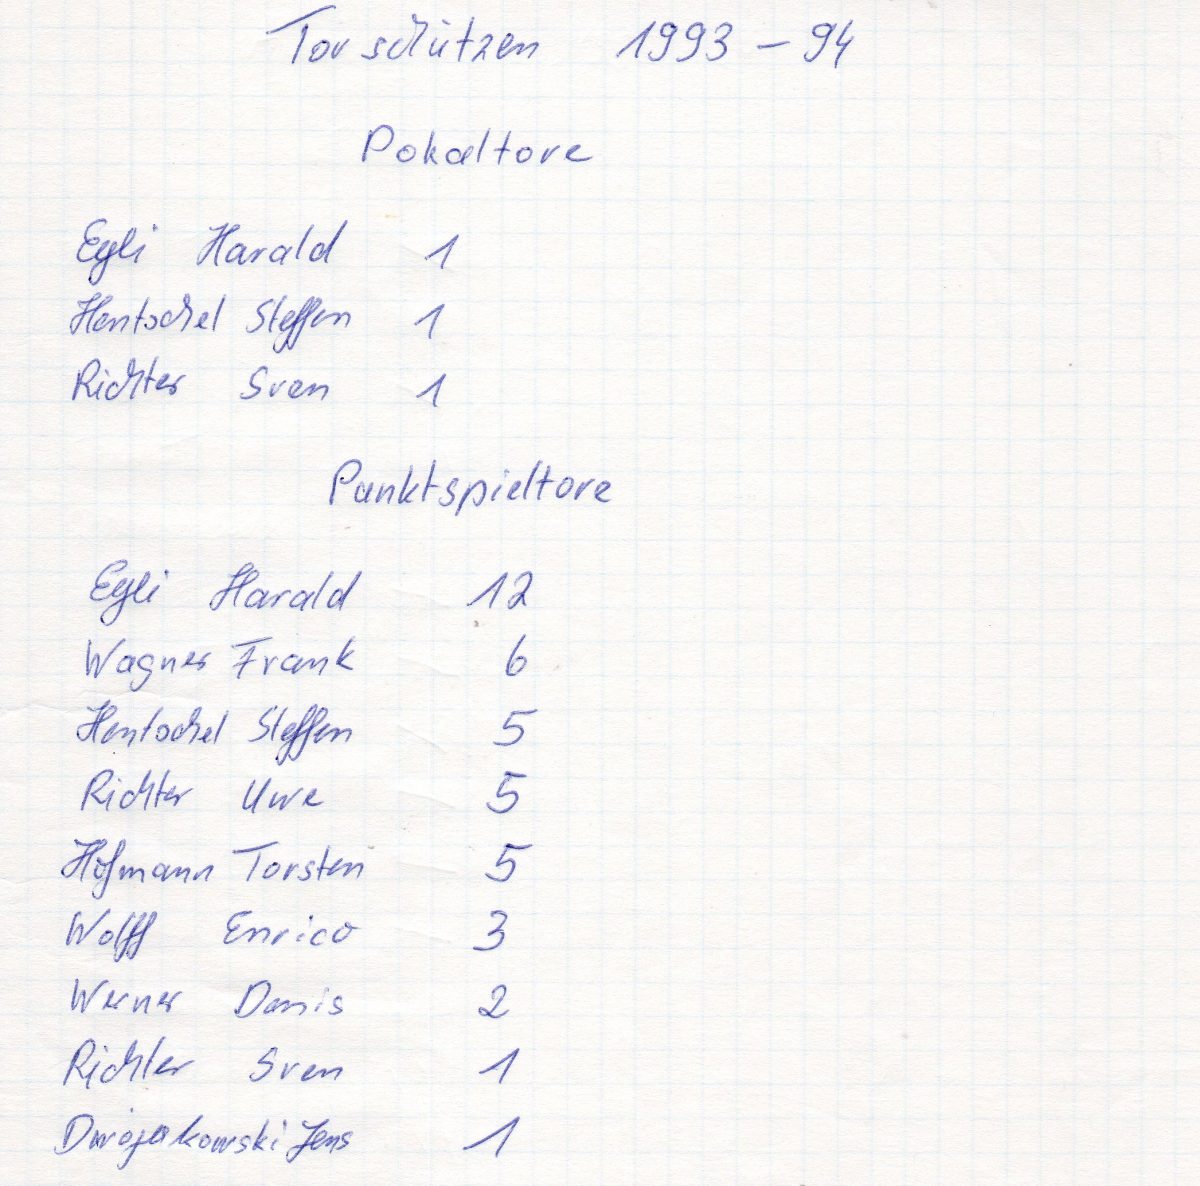 Torschützen 1993 - 94
Pokaltore
Egli Harald 1
Hentschel Steffen 1
Richter Sven 1
Punktspieltore
Egli Harald 12
Wagner Frank 6
Hentschel Steffen 5
Richter Uwe 5
Hofmann Torsten 5
Wolff Enrico 3
Werner Denis 2
Richter Sven 1
Dwojakowski Jens 1